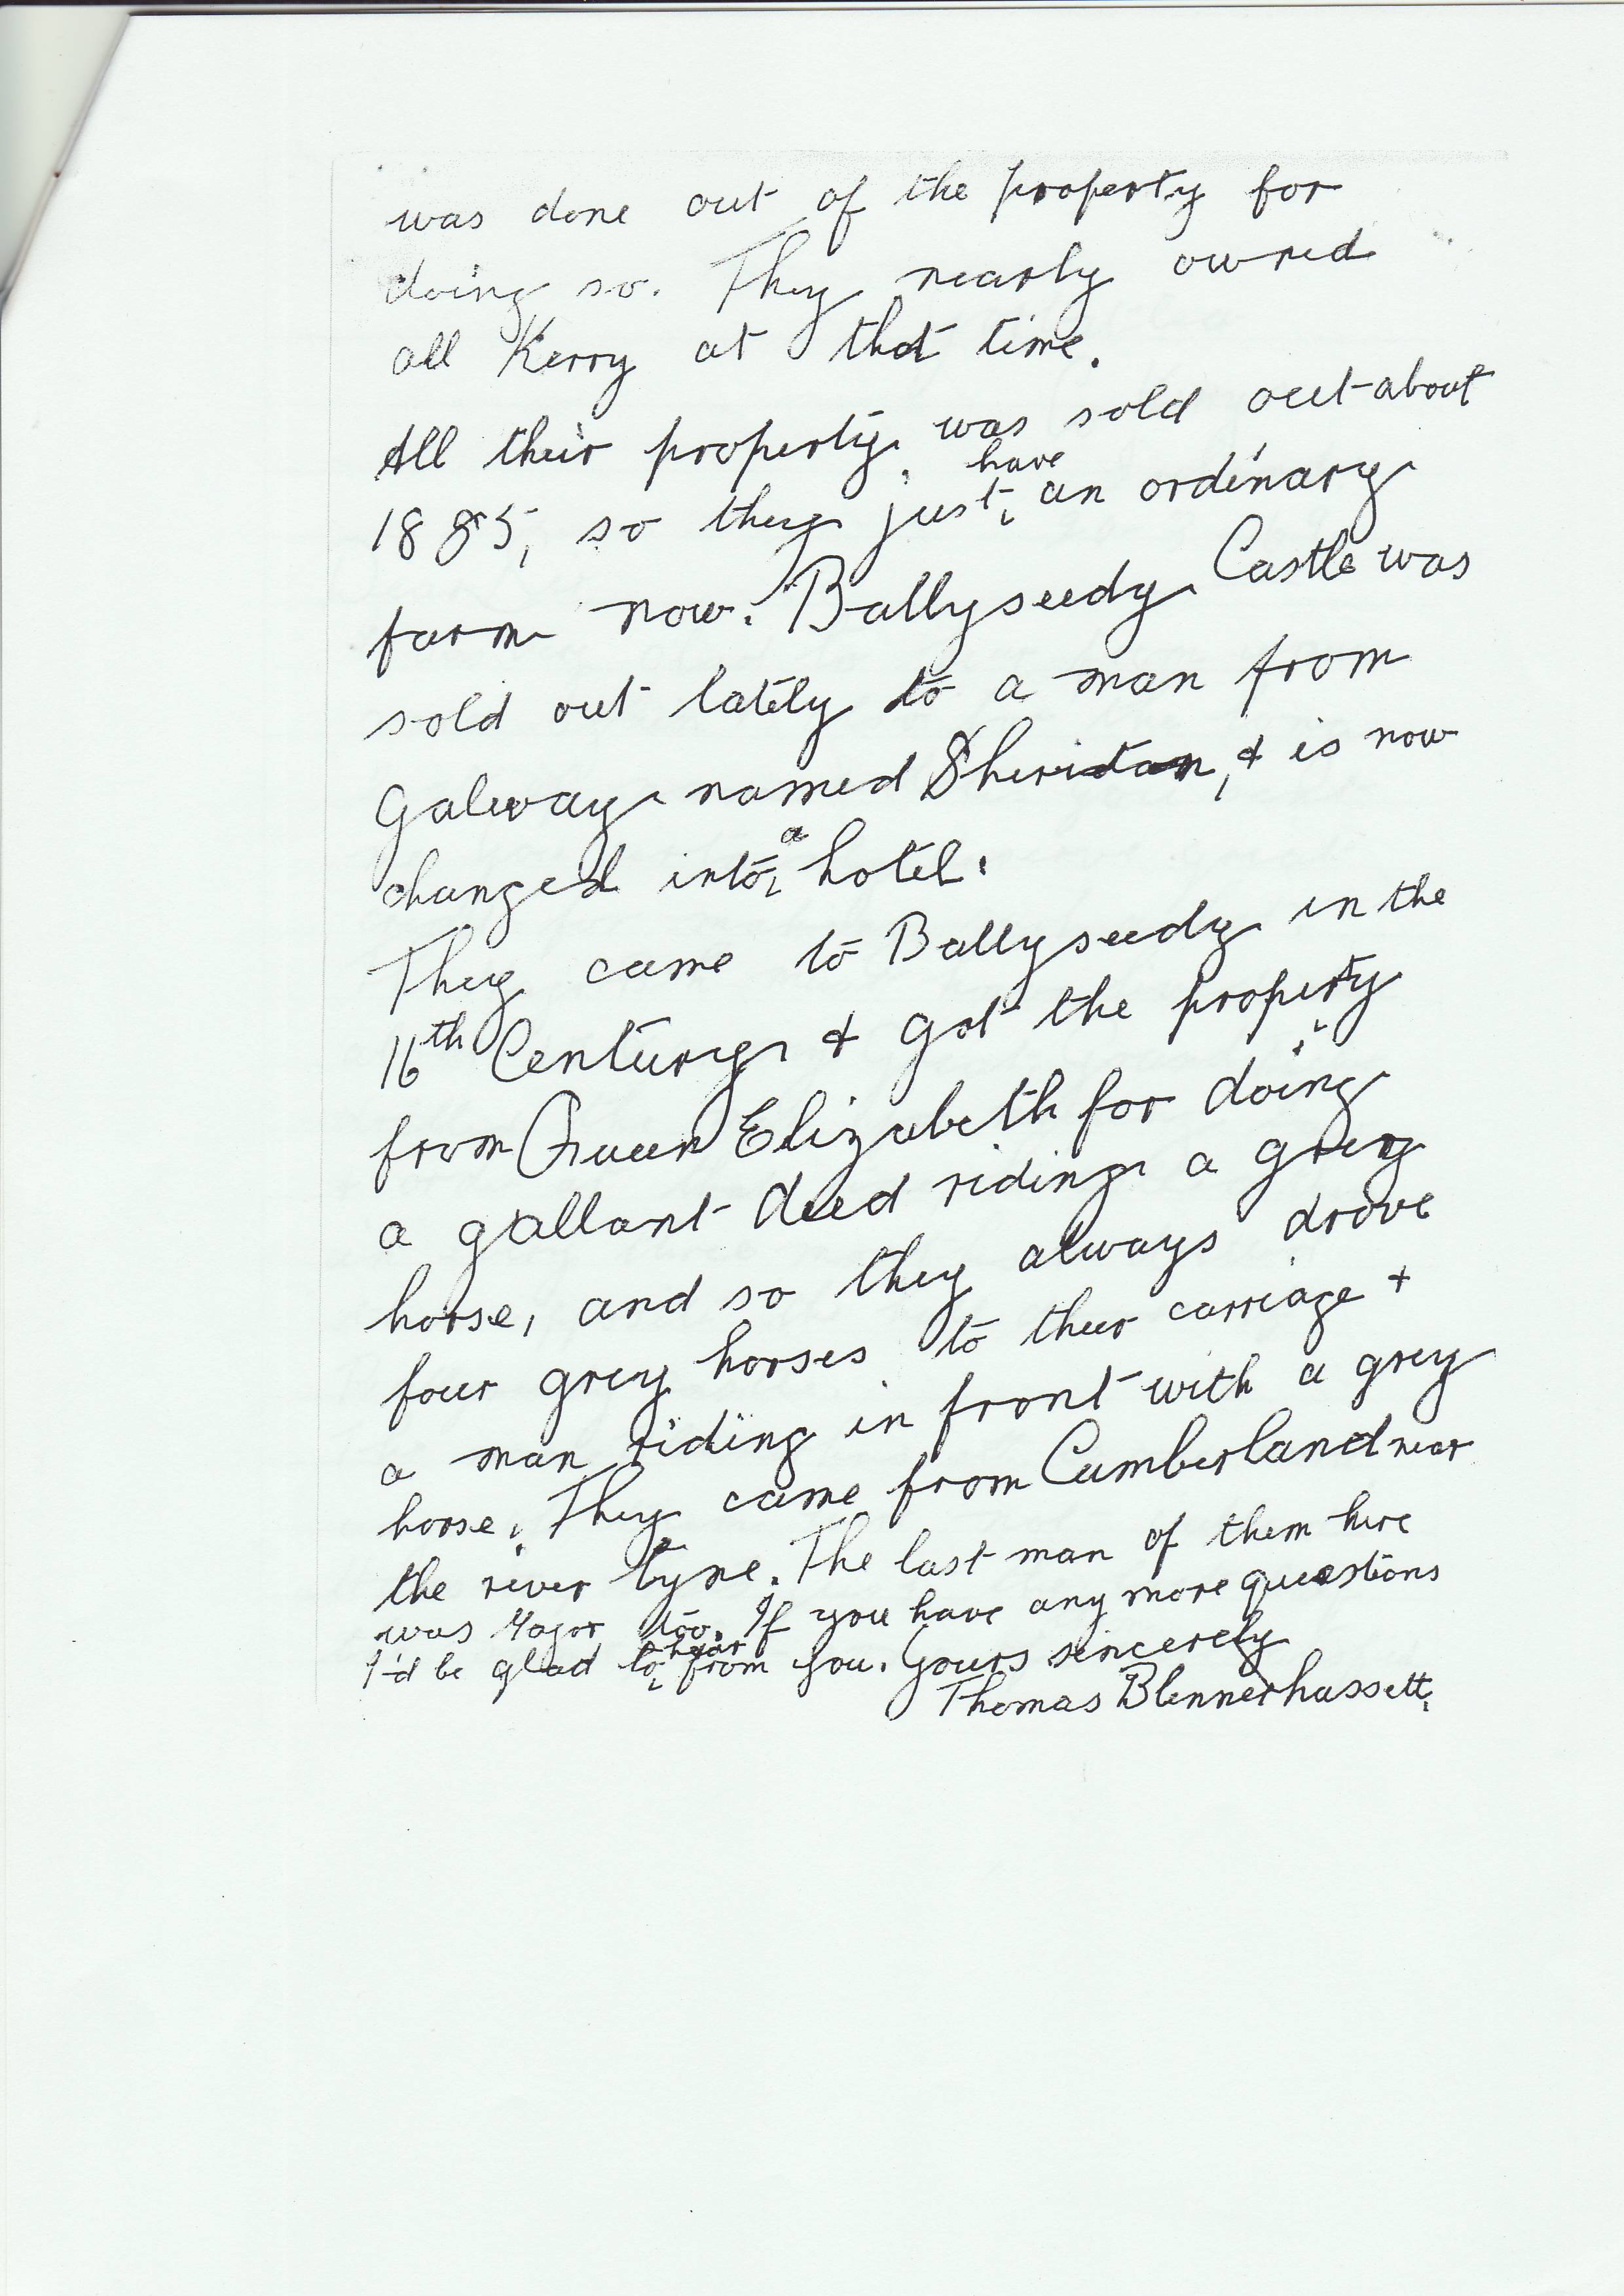 was done out of the property for
doing so. They nearly owned
all Kerry at that time.
All their property was sold out about
have
1885, so they just, an ordinary
farm now. Ballyseedy Castle was
sold out lately to a man from
Galway named Sheridan, & is now
a
changed into, hotel.
They came to Ballyseedy in the
16th Century & got the property
from Queen Elizabeth for doing
a gallant deed riding a grey
horse, and so they always drove
four grey horses to their carriage &
a man riding in front with a grey
horse. They came from Cumberland near
the river tyne. The last man of them here
was Major too. If you have any more questions
hear
I'd be glad to, from you. Yours sincerely
Thomas Blennerhassett.